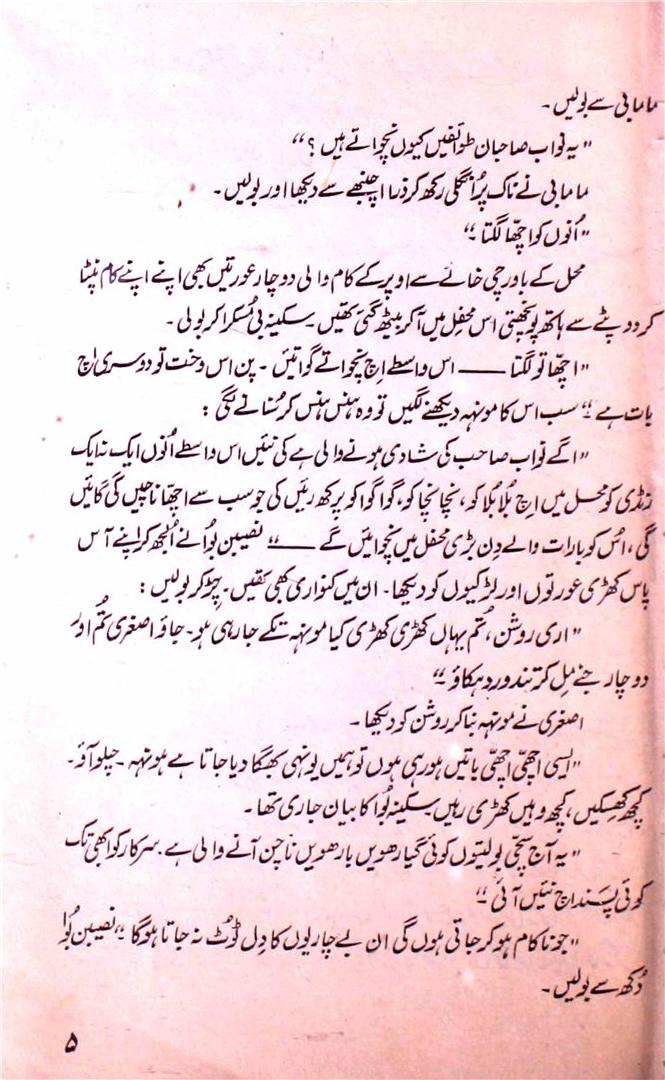 ماما بی سے بولیں۔
"یہ نواب صاحبان طوائفیں کیوں نچواتے ہیں؟"
ماما بی نے ناک پر اُنگلی رکھ کر ذرا اچنبھے سے دیکھا اور بولیں۔
"اُنوں کو اچھّا لگتا۔"
محل کے باورچی خانے سے اوپر کے کام والی دو چار عورتیں بھی اپنے اپنے کام نپٹا
کر دوپٹے سے ہاتھ پونچھتی اس محفل میں آ کر بیٹھ گئی تھیں۔ سکینہ بی مُسکرا کر بولی۔
"اچھّا تو لگتا —— اس واسطے اِچ نچواتے گواتیں۔ پن اس وخت تو دوسری اچ
بات ہے۔" سب اس کا مونہہ دیکھنے لگیں تو وہ ہنس ہنس کر سُنانے لگی:
"اگے نواب صاحب کی شادی ہونے والی ہے کی نئیں اس واسطے اُنوں ایک نہ ایک
رنڈی کو محل میں اِچ بُلا بُلا کو، نچا نچا کو، گوا گوا کو پرکھ رئیں کی جو سب سے اچھّا ناچیں گی گائیں
گی، اُس کو بارات والے دِن بڑی محفل میں نچوائیں گے ——" نصیبن بُوا نے اُلجھ کر اپنے آس
پاس کھڑی عورتوں اور لڑکیوں کو دیکھا۔ ان میں کنواری بھی تھیں۔ چڑ کر بولیں:
"اری روشن، تُم یہاں کھڑی کھڑی کیا مونہہ تکے جا رہی ہو۔ جاؤ اصغری تُم اور
دو چار جنے مِل کر تندور دہکاؤ۔"
اصغری نے مونہہ بنا کر روشن کو دیکھا۔
"ایسی اچھّی اچھّی باتیں ہو رہی ہوں تو ہمیں یونہی بھگا دیا جاتا ہے ہونہہ۔ چلو آؤ۔
کچھ کھسکیں، کچھ وہیں کھڑی رہیں۔ سکینہ بُوا کا بیان جاری تھا۔
"یہ آج سچّی بولیتوں کوئی گیارھویں بارھویں ناچن آنے والی ہے۔ سرکار کو ابھی تک
کوئی پسند اچ نئیں آئی۔"
"جو ناکام ہو کر جاتی ہوں گی ان بے چاریوں کا دِل ٹوٹ نہ جاتا ہوگا۔" نصیبن بُوا
دُکھ سے بولیں۔
۵